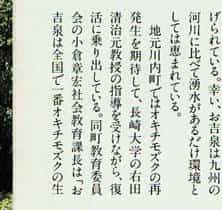 げられている。幸いお吉泉は九州の
河川に比べて湧水があるだけ環境と
しては恵まれている。
地元川内町ではオキチモズクの再
発生を期待して、長崎大学の右田
清治元教授の指導を受けながら、復
活に乗り出している。同町教育委員
会の小倉章宏社会教育課長は「お
吉泉は全国で一番オキチモズクの生